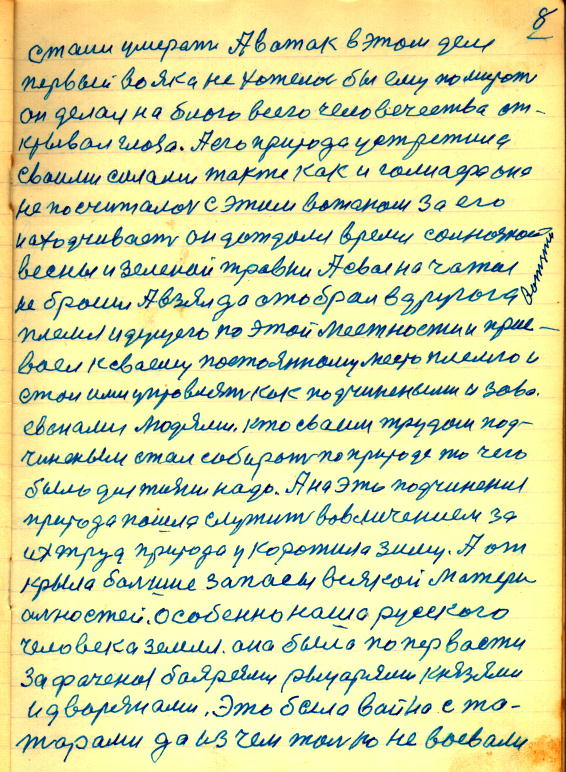 8
стали умерати А вотак в этом деле
первый вояка не хотелос бы ему помирать
он делал на благо всего человечества от-
крывал глаза. А его природа устретила
своими силами также как и голиафа она
не посчиталась с этим вотаком за его
находчивать он дождался время солнозной
весны и зеленой травки А свое начатое
не бросил А взял да отобрал в другога
племя идущего по этой местности и прие-
воел к своему постоянному место племю и
стал ими управлять как подчиненыими и заво.
еванами людями. кто своим трудом под-
чиненым стал собирать по природе то чего
было для жизни надо. А на это подчинения
природа пошла служить вовличением за
их труд природа укоротила зиму. А от
крыла большие запасы всякой матери
алностей. Особенно наша русского
человека земля. она была по первости
захвачена боярями рыцарями князями
и дворянами. Это была война с та-
тарами да из чем только не воевали